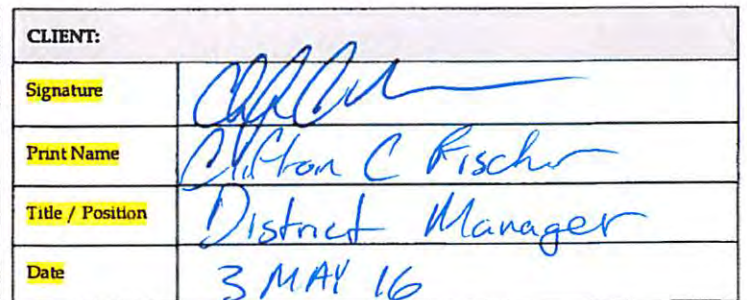 CLIENT:
Signature
Print Name Clifton C Fischer
Title / Position District Manager
Date 3 MAY 16